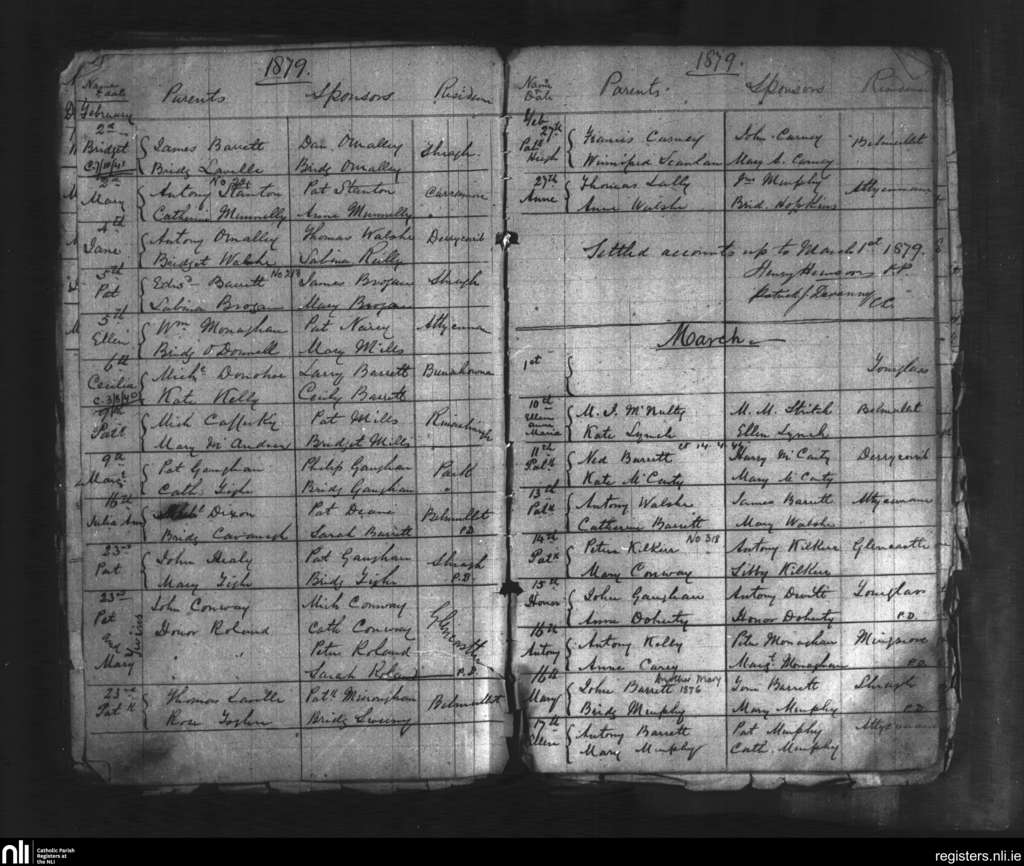 1879.
Name & date Parents Sponsors Residence
February
2nd Bridget James Barrett Dan. OMalley Shragh
C-7/10/41 Bridg Lavelle Bridg OMalley
2nd Mary Antony Stanton Pat Stanton Carramore
Catherine Munnelly Anne Munnelly "
4th Jane Antony OMalley Thomas Walshe Derrycorib
Bridget Walshe Sabina Reilly
5th Pat Edwd Barrett No 218 James Brogan Shragh
Sabina Brogan Mary Brogan
5th Ellen Wm Monaghan Pat Nary
Bridg O'Donnell Mary Mills
6th Cecilia Michl Donohoe Larry Barrett Bunahowna
C-3/8/40 Kate Kelly Cecily Barrett
Patk Mich Cafferky Pat Mills
Mary McAndrew Bridget Mills
9th Margt Pat Gaughan Philip Gaughan
Cath. Tighe Bridg Gaughan "
16th Julia Ann Dixon Pat Deane Belmullet
Bridg Cavanagh Sarah Barrett P.D.
23rd Pat John Healy Pat Gaughan Shragh
Mary Tighe Bridg Tighe P.D.
23rd Pat John Conway Mich Conway Glencastle
and Twins Honor Roland Cath Conway
Mary " " Peter Roland
Sarah Roland P.D.
23rd Patk Thomas Lavelle Patk Minoughan Belmullet
Rose Togher Bridg Sweeny
1879.
Name Date Parents. Sponsors Residence
Feb
27th Patk Hugh Francis Carney John Carney Belmullet
Winnifred Scanlan Mary A. Carney
27th Anne Thomas Lally Jms Murphy Attycunnane
Anne Walshe Brid. Hopkins
Settled accounts up to March 1st 1879.
Henry Hewson P.P.
Patrick J. C.C.
March
1st Tonglass
10th Ellen Anne Maria M. J. McNulty M. M. Stritch Belmullet
Kate Lynch Ellen Lynch
11th Patk Ned Barrett Harry McCarty Derrycorib
Kate McCarty Mary McCarty
13th Patk Antony Walshe James Barrett Attycunnane
Catherine Barrett Mary Walshe
14th Patk Peter Kilker No 318 Antony Kilker Glencastle
Mary Conway Libby Kilker
15th Honor John Gaughan Antony Tonglass
Anne Doherty Honor Doherty P.D.
16th Antony Antony Kelly Peter Monaghan
Anne Carey Margt Monaghan P.D.
16th Mary John Barrett Another Mary 1876 Tom Barrett Shragh
Bridg Murphy Mary Murphy P.D.
17th Antony Barrett Pat Murphy Attycunnane
Mary Murphy Cath. Murphy
nli Catholic Parish
Registers at
the NLI
registers.nli.ie